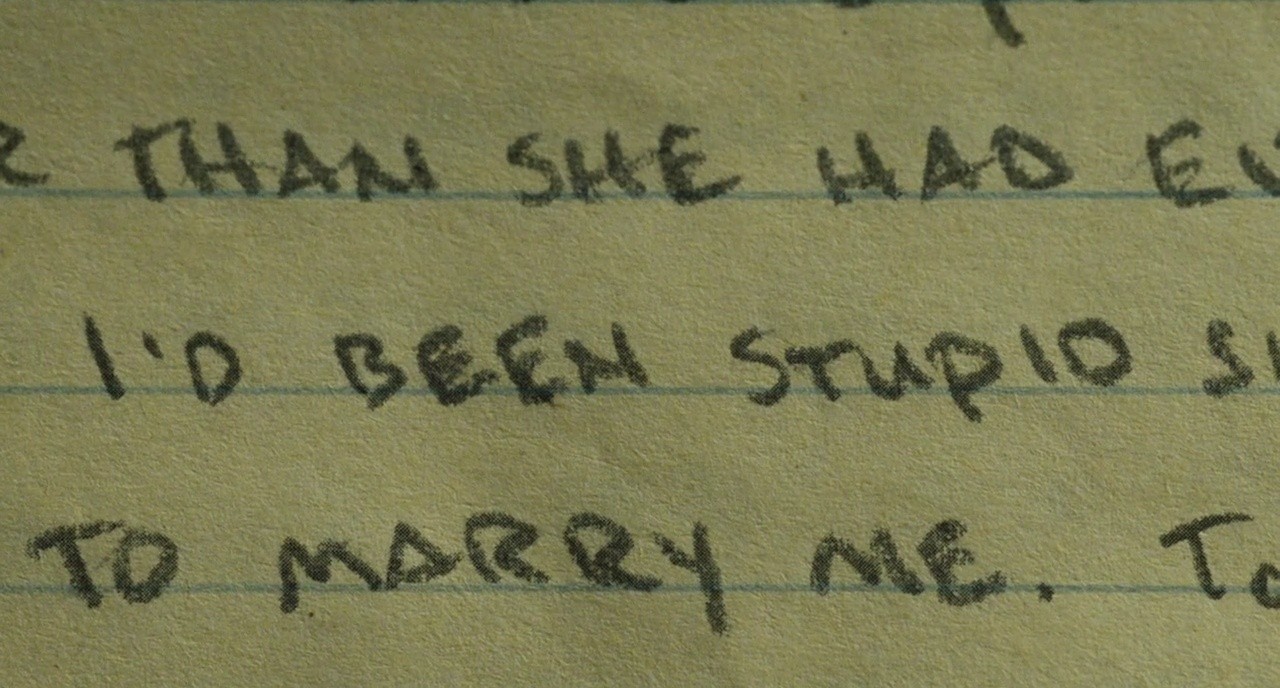 THAN SHE HAD
I'D BEEN STUPID
TO MARRY ME.